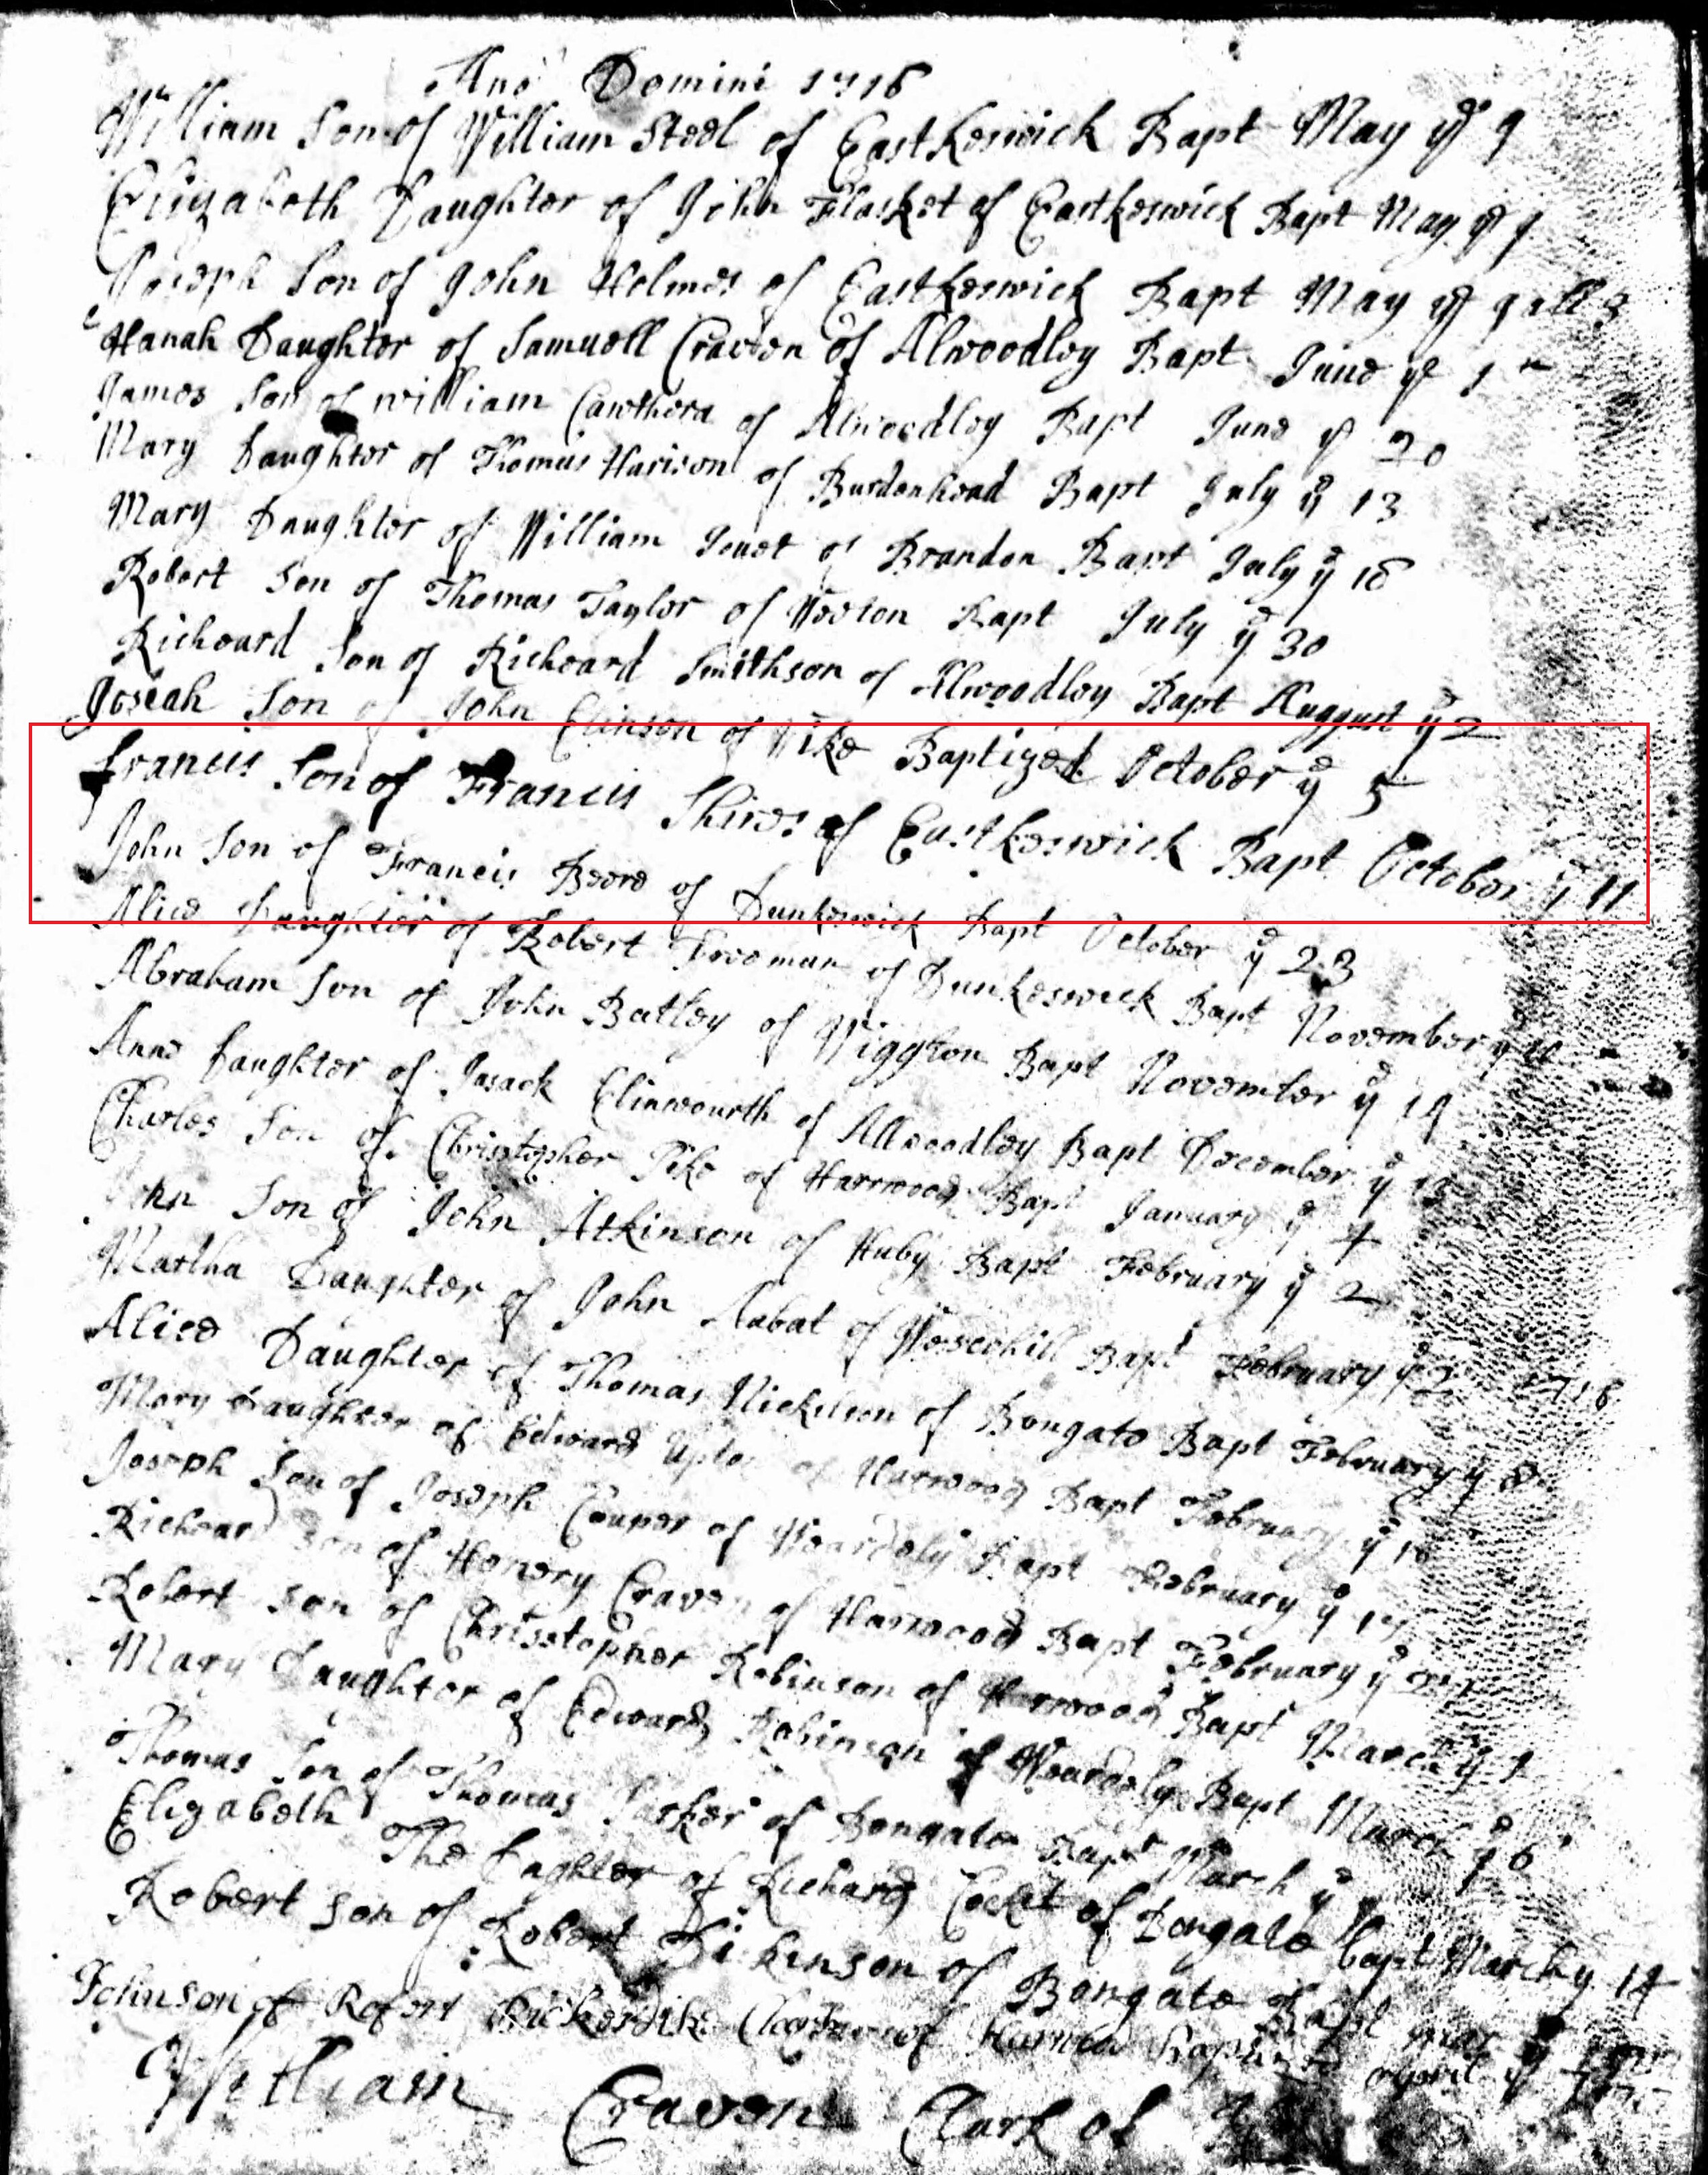 Ano Domini 1716
William Son of William Steel of Eastkeswick Bapt May ye 9
Elizabeth Daughter of John Flasket of Eastkeswick Bapt May ye 9
Joseph Son of John Holmes of Eastkeswick Bapt May ye 9 all 3
Hanah Daughter of Samuell Craven of Alwoodley Bapt June ye 1
James Son of william Cawthera of Alwoodley Bapt June ye 20
Mary Daughter of Thomas Harison of Burdenhead Bapt July ye 13
Mary Daughter of William of Brandon Bapt July ye 18
Robert Son of Thomas Taylor of Weeton Bapt July ye 30
Richeard Son of Richeard Smithson of Alwoodley Bapt Auggust ye 2
Joseah Son of John of Wike Baptized October ye 5
Francis Son of Francis Shires of Eastkeswick Bapt October ye 11
John Son of Francis Beere of Dunkeswick Bapt October ye 23
Alice Daughter of Robert Freeman of Dunkeswick Bapt November ye
Abraham Son of John Batley of Wigghton Bapt November ye 14
Anne Daughter of Jasack of Allwoodley Bapt December ye
Charles Son of Christopher Pike of Harrwood Bapt January ye 4
John Son of John Atkinson of Huby Bapt February ye 2
Martha Daughter of John of Bapt February ye 2 1716
Alice Daughter of Thomas Nickilson of Bongate Bapt February ye 8
Mary Daughter of Edward of Harwood Bapt February ye
Joseph Son of Joseph Couper of Weardely Bapt February ye
Richeard Son of Henery Craven of Harwood Bapt February ye
Robert Son of Christopher Robinson of Harwood Bapt March ye
Mary Daughter of Edward Robinson of Weardely Bapt March ye 6
Thomas Son of Thomas of Bongate Bapt March ye
Elizabeth The Daghter of Richard of Bongate bapt March y 14
Robert Son of Robert Dickinson of Bongate Bapt
John son of Robert of April ye
William Craven Clark of